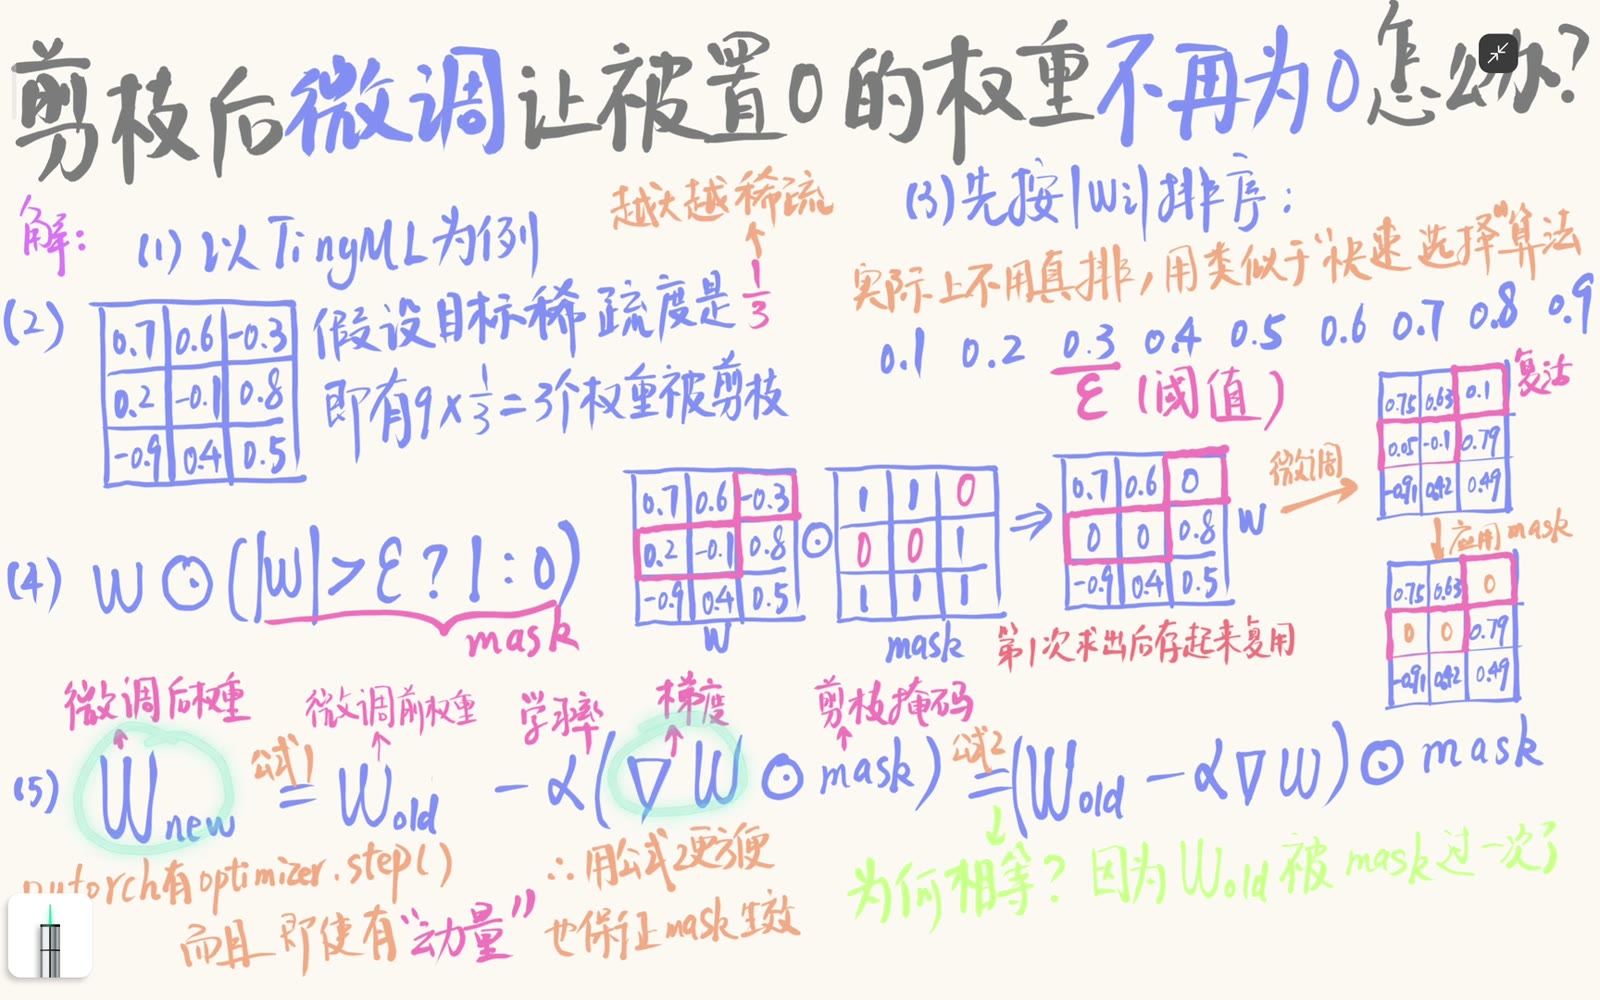 剪枝后微调让被置0的权重不再为0怎么办?
解:
(1) 以TinyML为例
越大越稀疏
(2)
0.7 0.6 -0.3
0.2 -0.1 0.8
-0.9 0.4 0.5
假设目标稀疏度是1/3
即有9×1/3=3个权重被剪枝
(3)先按|Wi|排序:
实际上不用真排,用类似于“快速选择”算法
0.1 0.2 0.3 0.4 0.5 0.6 0.7 0.8 0.9
ε (阈值)
(4) W⊙(|W|>ε?1:0)
mask
0.7 0.6 -0.3
0.2 -0.1 0.8
-0.9 0.4 0.5
W
⊙
1 1 0
0 0 1
1 1 1
mask
⇒
0.7 0.6 0
0 0 0.8
-0.9 0.4 0.5
W
第1次求出后存起来复用
微调
→
0.75 0.63 0.1
0.05 -0.1 0.79
-0.91 0.42 0.49
复活
↓应用mask
0.75 0.63 0
0 0 0.79
-0.91 0.42 0.49
微调后权重 微调前权重 学习率 梯度 剪枝掩码
(5) Wnew 公式1= Wold - α(∇W⊙mask) 公式2= (Wold - α∇W)⊙mask
pytorch有optimizer.step()
∴用公式2更方便
而且即使有“动量”也保证mask生效
为何相等?因为Wold被mask过一次了